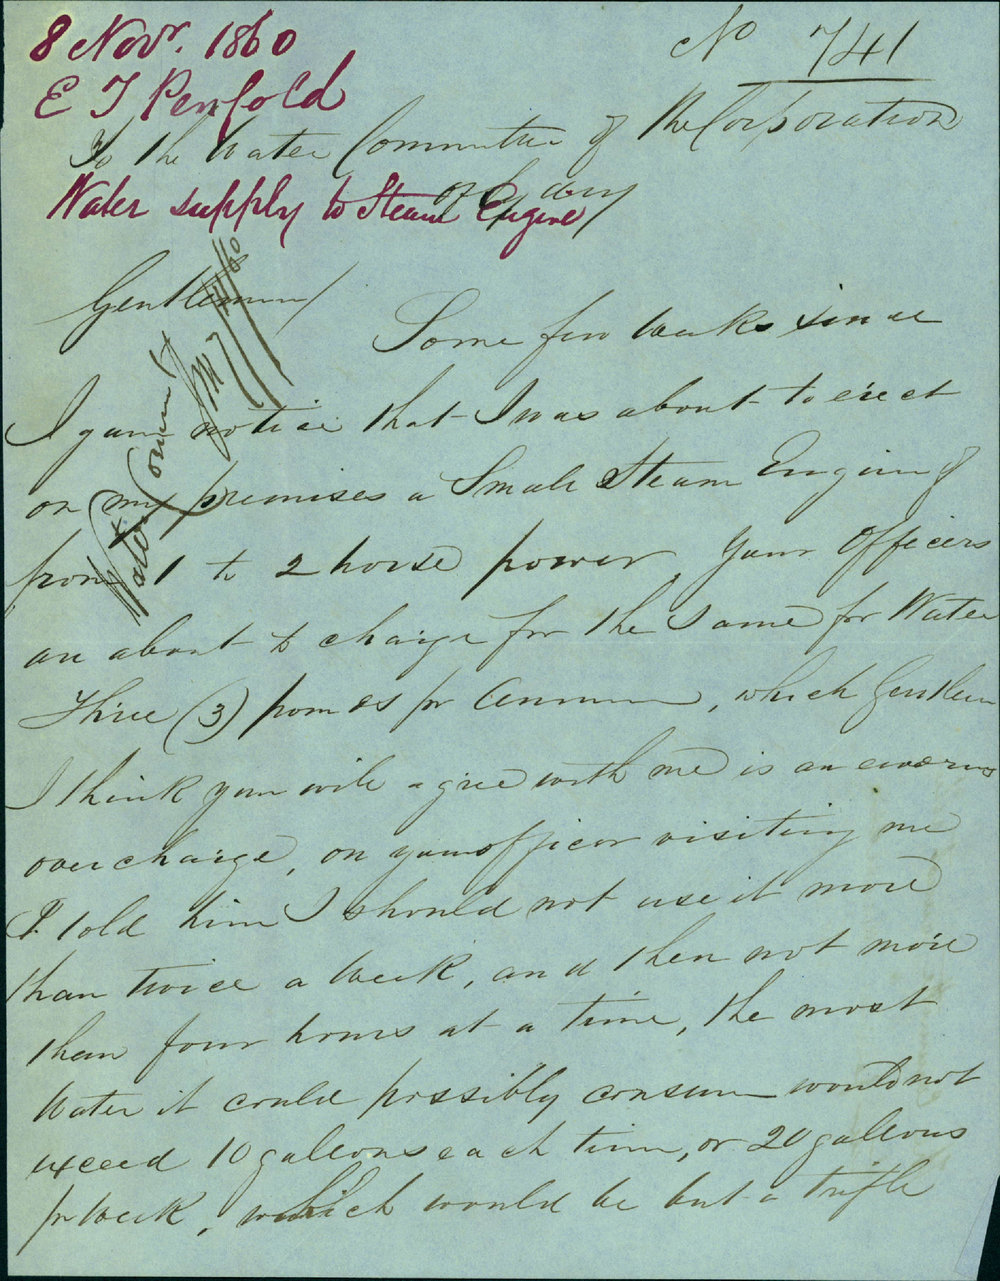 8 Novr. 1860
No 741
E J Penfold
To the Water Committee of the Corporation
of Sydney
Water supply to Steam Engine
Gentlemen/
Water Committee
Some few weeks since
I gave notice that I was about to erect
on my premises a Small Steam Engine of
from 1 to 2 horse power your Officers
are about to charge for the Same for Water
Three (3) pounds pr Annum, which Gentlemen
I think you will agree with me is an
over charge, on your officer visiting me
I told him I should not use it more
than twice a week, and then not more
than four hours at a time, the most
Water it could possibly consume would not
exceed 10 gallons each time, or 20 gallons
pr Week, which would be but a trifle